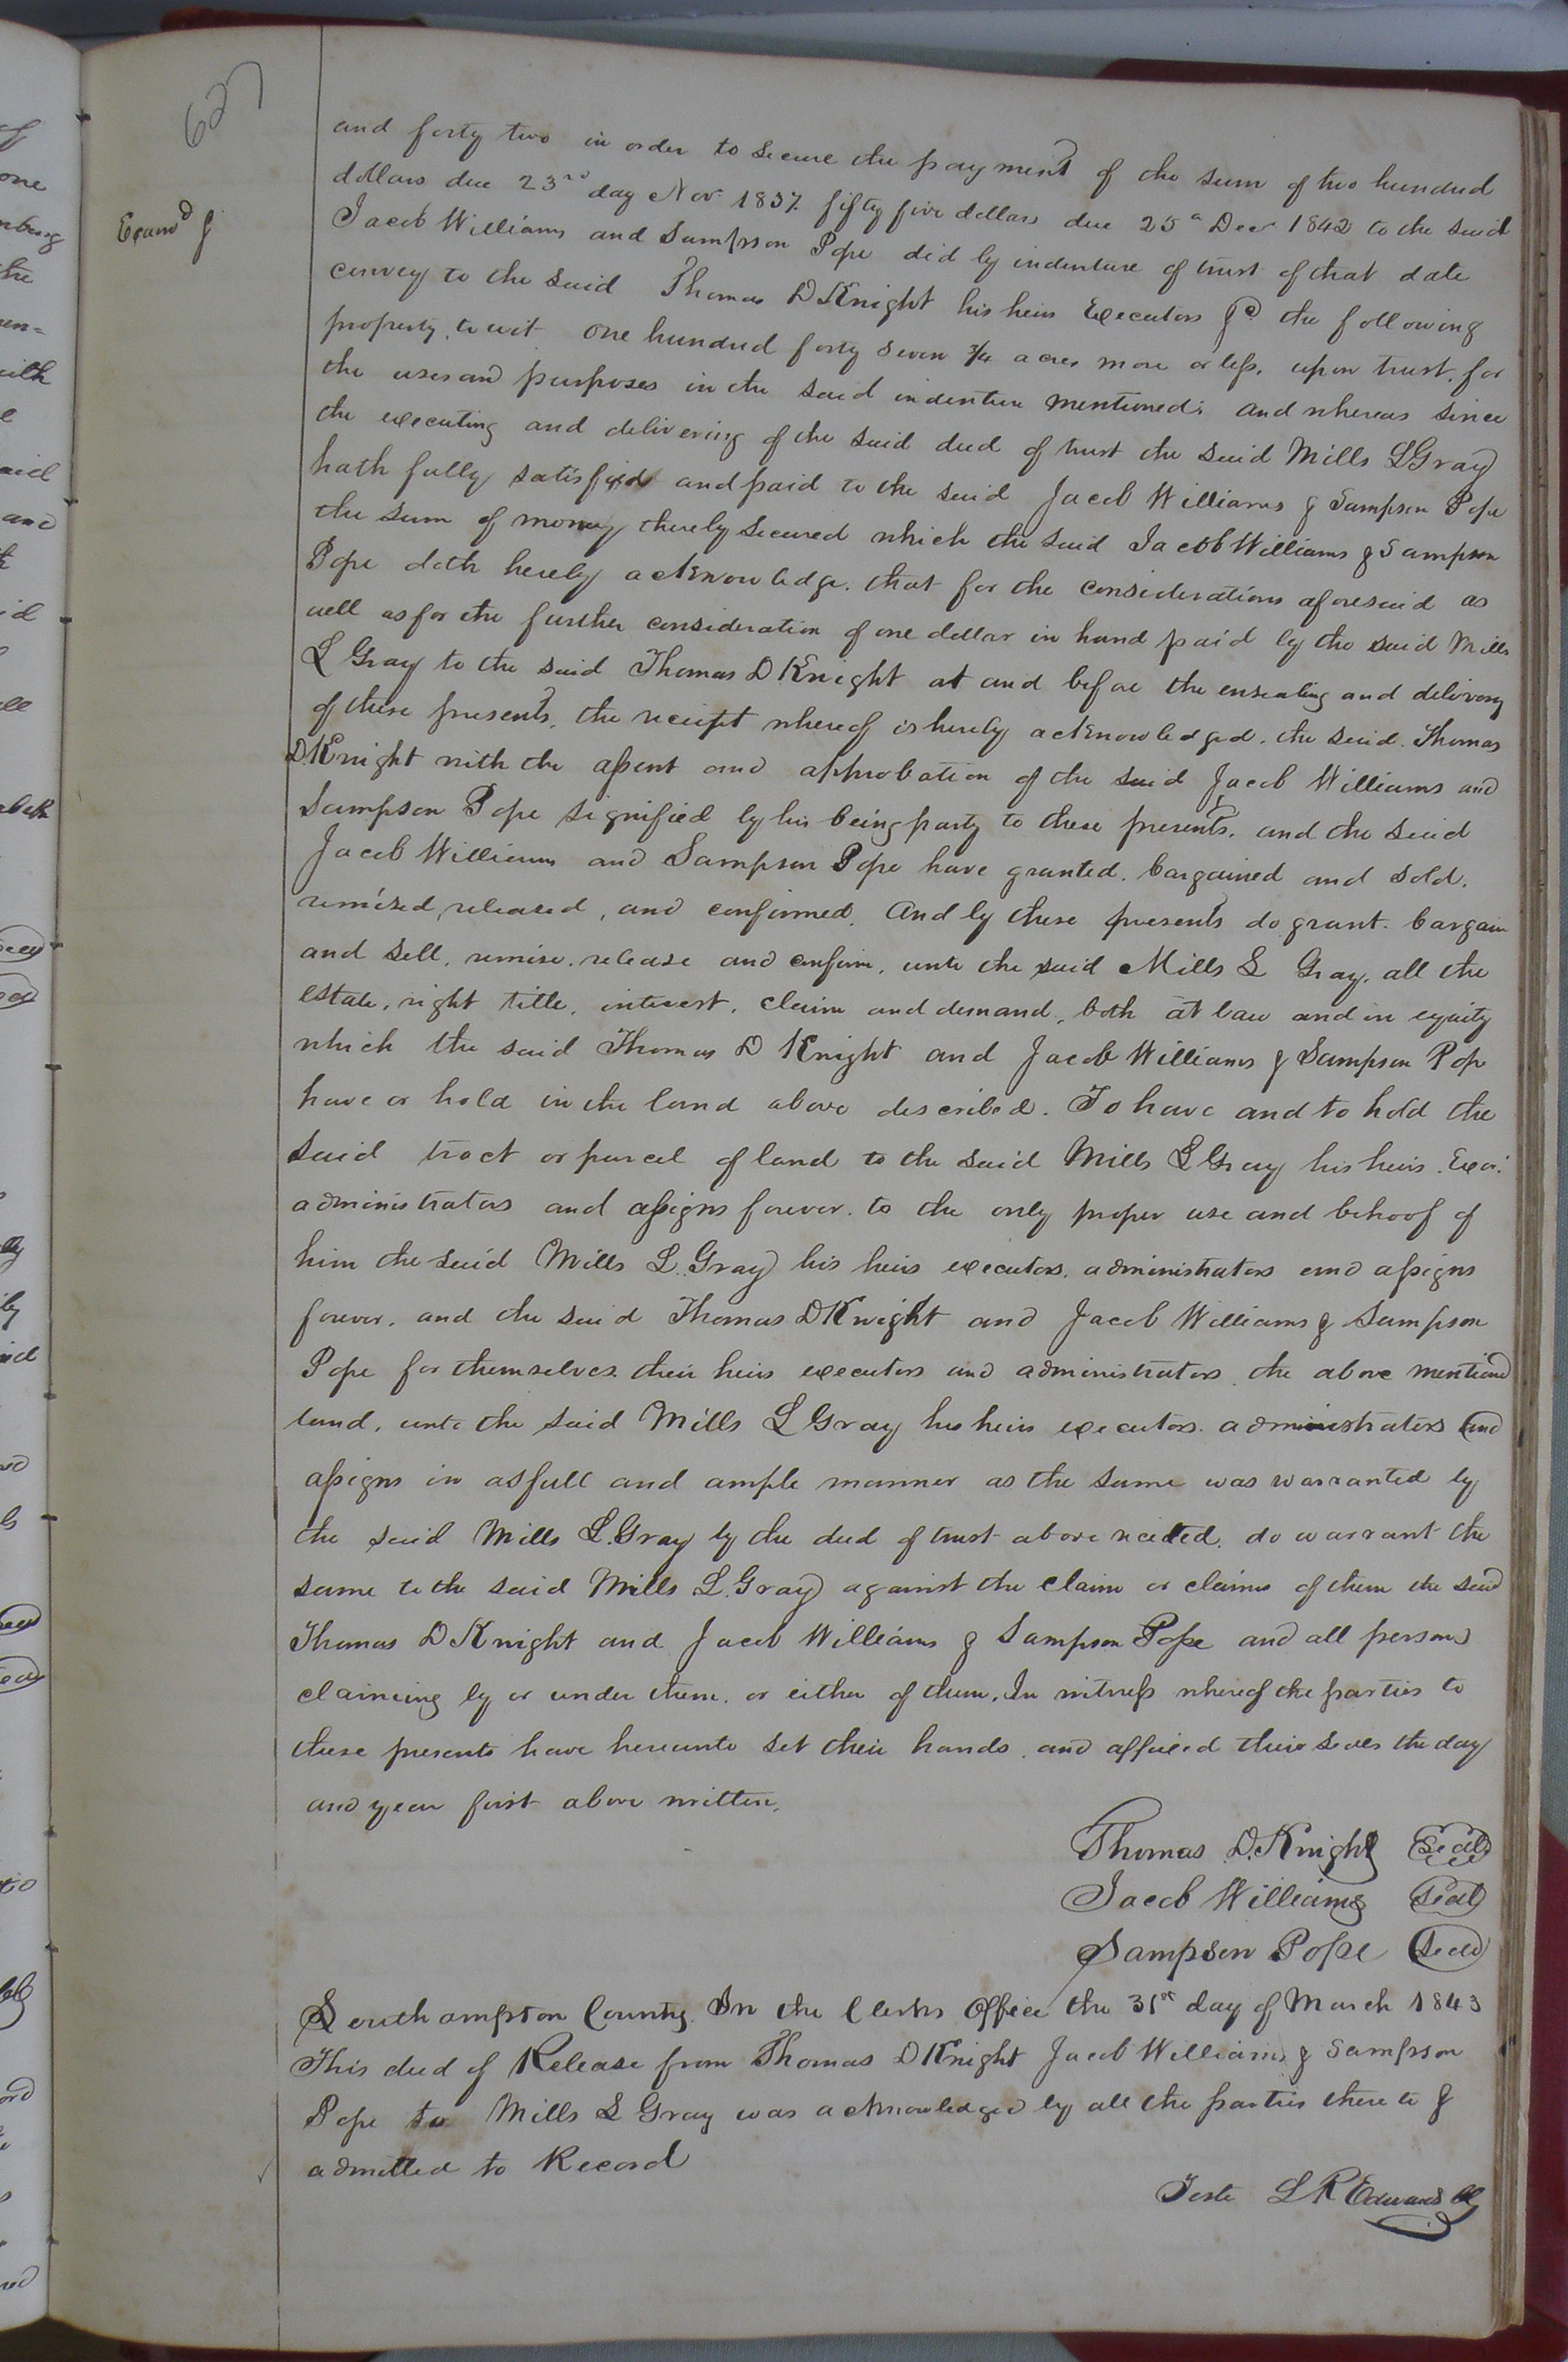 627
Examd &
and forty two in order to secure the payment of the sum of two hundred
dollars due 23rd day Nov 1837. fifty five dollars due 25th Decr 1842 to the said
Jacob Williams and Sampson Pope did by indenture of trust of that date
convey to the said Thomas D Knight his heirs Executors &c the following
property, to wit one hundred forty seven 3/4 acres more or less, upon trust, for
the uses and purposes in the said indenture mentioned; and whereas since
the executing and delivering of the said deed of trust the said Mills L Gray
hath fully satisfied and paid to the said Jacob Williams & Sampson Pope
the sum of money thereby secured which the said Jacob Williams & Sampson
Pope doth hereby acknowledge. that for the considerations aforesaid as
well as for the further consideration of one dollar in hand paid by the said Mills
L Gray to the said Thomas D Knight at and before the ensealing and delivery
of these presents, the receipt whereof is hereby acknowledged. the said. Thomas
D. Knight with the assent and approbation of the said Jacob Williams and
Sampson Pope signified by his being party to these presents. and the said
Jacob Williams and Sampson Pope have granted. bargained and sold.
remised, released, and confirmed. And by these presents do grant. bargain
and sell, remise. release and confirm, unto the said Mills L Gray, all the
estate, right title, interest, claim and demand, both at law and in equity
which the said Thomas D Knight and Jacob Williams & Sampson Pope
have or hold in the land above described. To have and to hold the
said tract or parcel of land to the said Mills L Gray his heirs. Exors.
administrators and assigns forever. to the only proper use and behoof of
him the said Mills L. Gray his heirs executors. administrators and assigns
forever, and the said Thomas D Knight and Jacob Williams & Sampson
Pope for themselves their heirs executors and administrators the above mentiond
land, unto the said Mills L Gray his heirs executors. administrators and
assigns in as full and ample manner as the same was warranted by
the said Mills L. Gray by the deed of trust above recited. do warrant the
same to the said Mills L. Gray against the claim or claims of them the said
Thomas D Knight and Jacob Williams & Sampson Pope and all persons
claiming by or under them. or either of them. In witness whereof the parties to
these presents have hereunto set their hands. and affixed their seals the day
and year first above written.
Thomas D. Knight Seal
Jacob Williams Seal
Sampson Pope Seal
Southampton County. In the Clerks Office the 31st day of March 1843
This deed of Release from Thomas D Knight Jacob Williams & Sampson
Pope to Mills L Gray was acknowledged by all the parties thereto &
admitted to Record
Teste L R Edwards Cl